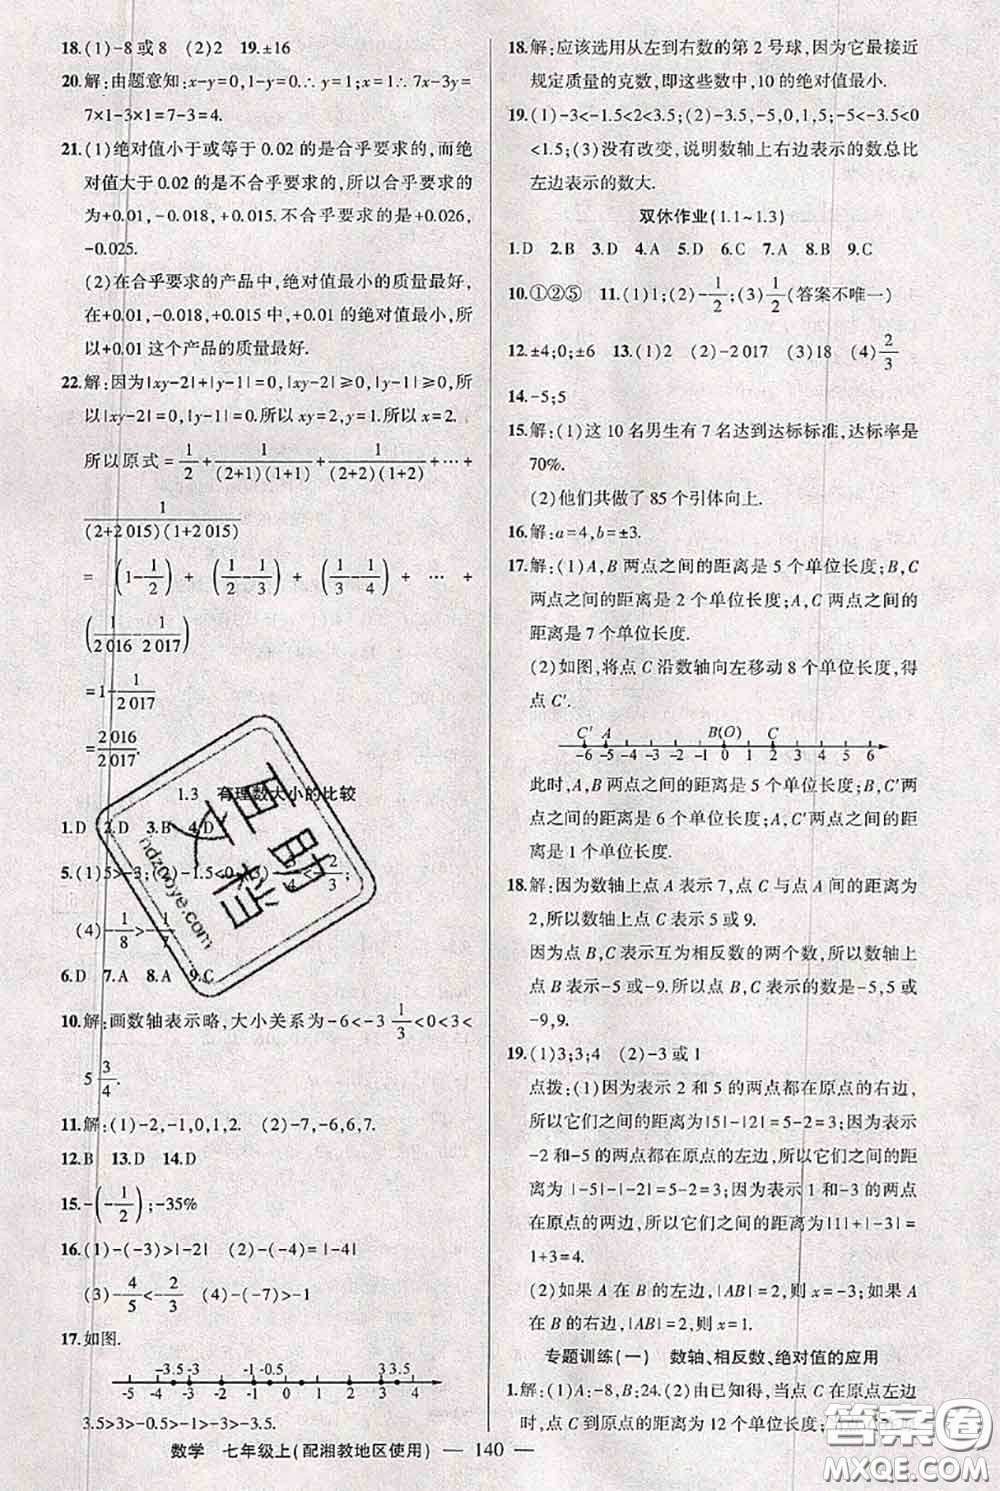 18.(1)-8或8 (2)2 19.±16
20.解:由题意知:x-y=0,1-y=0∴y=1;x=1 7x-3y=
7×1-3×1=7-3=4.
21.(1)绝对值小于或等于0.02的是合乎要求的,而绝
对值大于0.02的是不合乎要求的,所以合乎要求的
为+0.01,-0.018,+0.015.不合乎要求的是+0.026,
-0.025.
(2)在合乎要求的产品中,绝对值最小的质量最好,
在+0.01,-0.018,+0.015中,+0.01的绝对值最小,所
以+0.01这个产品的质量最好.
22.解:因为|xy-2|+|y-1|=0,|xy-2|≥0,|y-1|≥0,所
以|xy-2|=0,|y-1|=0.所以xy=2,y=1.所以x=2.
所以原式=1/2+1/((2+1)(1+1))+1/((2+2)(1+2))+…+
1/((2+2 015)(1+2 015))
=(1-1/2)+(1/2-1/3)+(1/3-1/4)+…+
(1/2 016-1/2 017)
=1-1/2 017
=2 016/2 017.
1.3 有理数大小的比较
1.D 2.D 3.B 4.D
5.(1)5>-3;(2)-1.5<0;(3)-3/4<-2/3;
(4)-1/8>-1/7
6.D 7.A 8.A 9.C
10.解:画数轴表示略,大小关系为-6<-3 1/3<0<3<
5 3/4.
11.解:(1)-2,-1,0,1,2. (2)-7,-6,6,7.
12.B 13.D 14.D
15.-(-1/2);-35%
16.(1)-(-3)>|-2| (2)-(-4)=|-4|
(3)-4/5<-2/3 (4)-(-7)>-1
17.如图.
-3.5 -3 -1 -0.5 3 3.5
-5 -4 -3 -2 -1 0 1 2 3 4 5
3.5>3>-0.5>-1>-3>-3.5.
18.解:应该选用从左到右数的第2号球,因为它最接近
规定质量的克数,即这些数中,10的绝对值最小.
19.(1)-3<-1.5<2<3.5;(2)-3.5,-5,0,1.5;-5<-3.5<0
<1.5;(3)没有改变,说明数轴上右边表示的数总比
左边表示的数大.
双休作业(1.1~1.3)
1.D 2.B 3.D 4.A 5.D 6.C 7.A 8.B 9.C
10.①②⑤ 11.(1)1;(2)-1/2;(3)1/2(答案不唯一)
12.±4;0;±6 13.(1)2 (2)-2 017 (3)18 (4)2/3
14.-5;5
15.解:(1)这10名男生有7名达到达标标准,达标率是
70%.
(2)他们共做了85个引体向上.
16.解:a=4,b=±3.
17.解:(1)A,B两点之间的距离是5个单位长度;B,C
两点之间的距离是2个单位长度;A,C两点之间的
距离是7个单位长度.
(2)如图,将点C沿数轴向左移动8个单位长度,得
点C′.
C′ A B(O) C
-6 -5 -4 -3 -2 -1 0 1 2 3 4 5 6
此时,A,B两点之间的距离是5个单位长度;B,C′
两点之间的距离是6个单位长度;A,C′两点之间的
距离是1个单位长度.
18.解:因为数轴上点A表示7,点C与点A间的距离为
2,所以数轴上点C表示5或9.
因为点B,C表示互为相反数的两个数,所以数轴上
点B表示-5或-9.所以点B,C表示的数是-5,5或
-9,9.
19.(1)3;3;4 (2)-3或1
点拨:(1)因为表示2和5的两点都在原点的右边,
所以它们之间的距离为|5|-|2|=5-2=3;因为表示
-2和-5的两点都在原点的左边,所以它们之间的距
离为|-5|-|-2|=5-2=3;因为表示1和-3的两点
在原点的两边,所以它们之间的距离为|1|+|-3|=
1+3=4.
(2)如果A在B的左边,|AB|=2,则x=-3;如果A
在B的右边,|AB|=2,则x=1.
专题训练(一) 数轴、相反数、绝对值的应用
1.解:(1)A:-8,B;24.(2)由已知得,当点C在原点左边
时,点C到原点的距离为12个单位长度;当点C在
数学 七年级上(配湘教地区使用) — 140 —
互助文档
ndzooye.com
答案圈
MXQE.COM